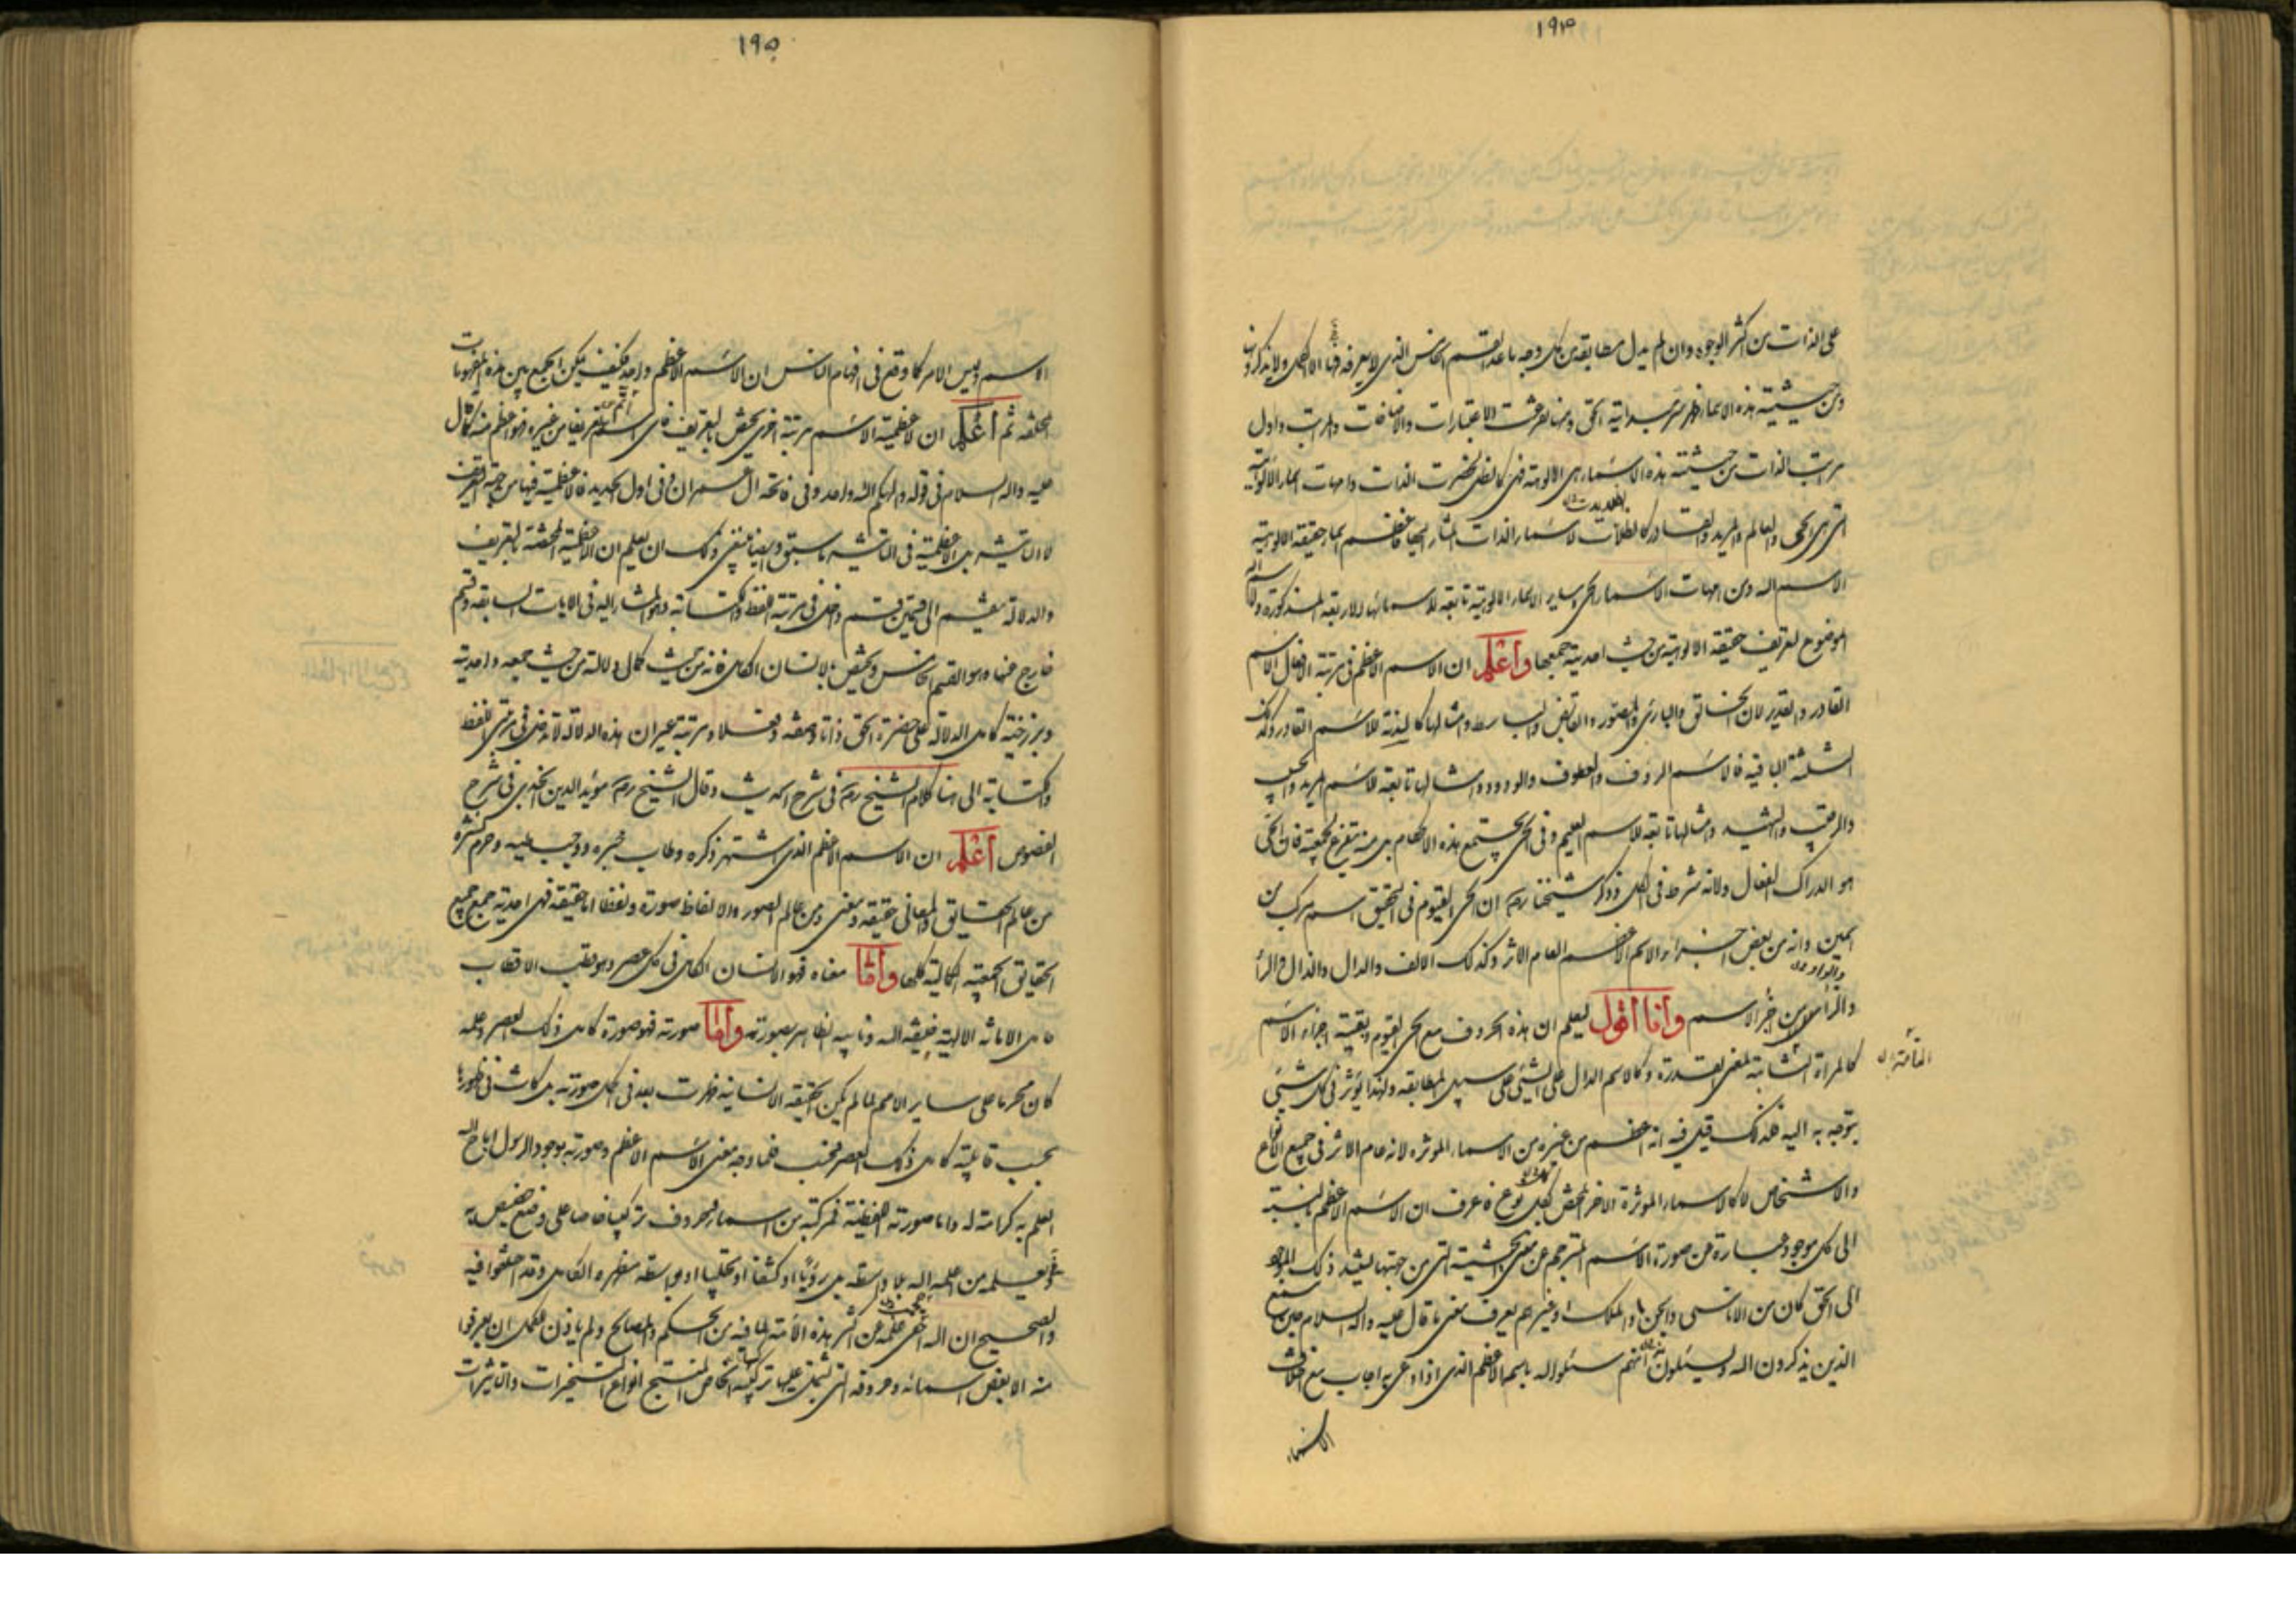 ١٩٤
على الذات من اكثر الوجوه وان لم يدل مطابقة من كل وجه ما عدا القسم الخامس الذى لا يعرفه الا الكمل ولا يذكرون
ومن حيثية هذه الاسماء مرتبة الحق ومنها تعرفت الاعتبارات والاضافات والمراتب واول
مراتب الذات من حيثية هذه الاسماء هى الالوهة فهى كالظل لحضرت الذات وامهات اسماء الالوهية
التى هى الحى والعالم والمريد والقادر كالظلالات لاسماء الذات المشار اليها فاعظم اسماء حقيقة الالوهية
الاسم الله ومن امهات الاسماء الحى وساير الاسماء الالوهية تابعة للاسماء الاربعة المذكورة والاسم الله
الموضوع لتعريف حقيقة الالوهية من حيث احدية جمعها واعلم ان الاسم الاعظم فى مرتبة الافعال الاسم
القادر والقدير لان الخالق والبارئ والمصور والقابض والباسط وامثالها كالسدنة للاسم القادر وكذلك
الثلثة الباقية فالاسم الرؤف والعطوف والودود وامثالها تابعة لاسم المريد
والرقيب والشهيد وامثالها تابعة للاسم العليم وفى الحى يجتمع هذه الاحكام بل منه يتفرع لجمعيته فان الحى
هو الدراك الفعال ولانه شرط فى الكل وذكر شيخنا رض ان الحى القيوم فى التحقيق اسم مركب من
اسمين وانه من بعض اجزاء الاسم الاعظم العام الاثر وكذلك الالف والدال والذال والرا
والواو
والزا من جزء الاسم وانا اقول ليعلم ان هذه الحروف مع الحى القيوم وبقية اجزاء الاسم
كالمراة التامة لمعنى القدرة وكالاسم الدال على الشئ على سبيل المطابقة ولهذا يؤثر فى كل شئ
يتوجه به اليه فلذلك قيل فيه انه اعظم من غيره من الاسماء الموثرة لانه عام الاثر فى جميع الانواع
والاشخاص لا كالاسماء الموثرة الاخر المختص كل بنوع فاعرف ان الاسم الاعظم بالنسبة
الى كل موجود عبارة عن صورة الاسم المترجم عن معنى الحيثية التى من جهتها ليستند ذلك الموجود
الى الحق كان من الاناسى والجن او الملك او غيرهم يعرف معنى ما قال عليه واله السلام حين سمع
الذين يذكرون الله ويسئلون منهم سئلوا الله باسمه الاعظم الذى اذا دعى به اجاب مع اختلاف
الاسماء
١٩٥
الاسم وليس الامر كما وقع فى افهام الناس ان الاسم الاعظم واحد فكيف يمكن الجمع بين هذه المفهومات
المختلفة ثم اعلم ان لاعظمية الاسم مرتبة اخرى يختص بالتعريف فاى اسم اتم تعريفا من غيره فهو اعظم منه كما قال
عليه واله السلام فى قوله والهكم اله واحد وفى فاتحة ال عمران وفى اول الحديد فالاعظمية فيها من جهة التعريف
لا التاثير بل الاعظمية فى التاثير ما سبق وايضا ينبغى لك ان تعلم ان الاعظمية المختصة بالتعريف
والدلالة ينقسم الى قسمين قسم داخل فى مرتبة اللفظ والكتابة وهو المشار اليه فى الايات السابقة وقسم
خارج عنهما وهو القسم الخامس ويختص بالانسان الكامل فانه من حيث كمال دلالته من حيث جمعه واحديته
وبرزخيته كامل الدلالة على حضرة الحق ذاتا وصفة وفعلا ومرتبة غير ان هذه الدلالة لا تدخل فى مرتبتى اللفظ
والكتابة الى هنا كلام الشيخ رض فى شرح الحديث وقال الشيخ رض مؤيد الدين الجندى فى شرح
الفصوص اعلم ان الاسم الاعظم الذى اشتهر ذكره وطاب خبره ووجب طيه وحرم نشره
من عالم الحقايق والمعانى حقيقة ومعنى ومن عالم الصور والالفاظ صورة ولفظا اما حقيقته فهى احدية جمع جميع
الحقايق الجمعية الكمالية كلها واما معناه فهو الانسان الكامل فى كل عصر وهو قطب الاقطاب
حامل الامانة الالهية خليفة الله ونايبه الظاهر بصورته واما صورته فهو صورة كامل ذلك العصر وعلمه
كان محرما على ساير الامم لما لم يكن الحقيقة الانسانية ظهرت بعد فى اكمل صورته بل كانت فى ظهورها
بحسب قابلية كامل ذلك العصر فحسب فلما وجد معنى الاسم الاعظم وصورته بوجود الرسول اباح الله
العلم به كرامة له واما صورته اللفظية فمركبة من اسماء وحروف تركيبا خاصا على وضع
يعلمه من علمه الله بلا واسطة بل رؤيا او كشفا او تجليا او بواسطة مظهره الكامل وقد اختلفوا فيه
والصحيح ان الله اخفى علمه عن اكثر هذه الامة لما فيه من الحكم والمصالح ولم ياذن للكمل ان يعرفوا
منه الا بعض اسمائه وحروفه التى يشتمل عليها تركيبه الخاص المنتج انواع التسخيرات والتاثيرات